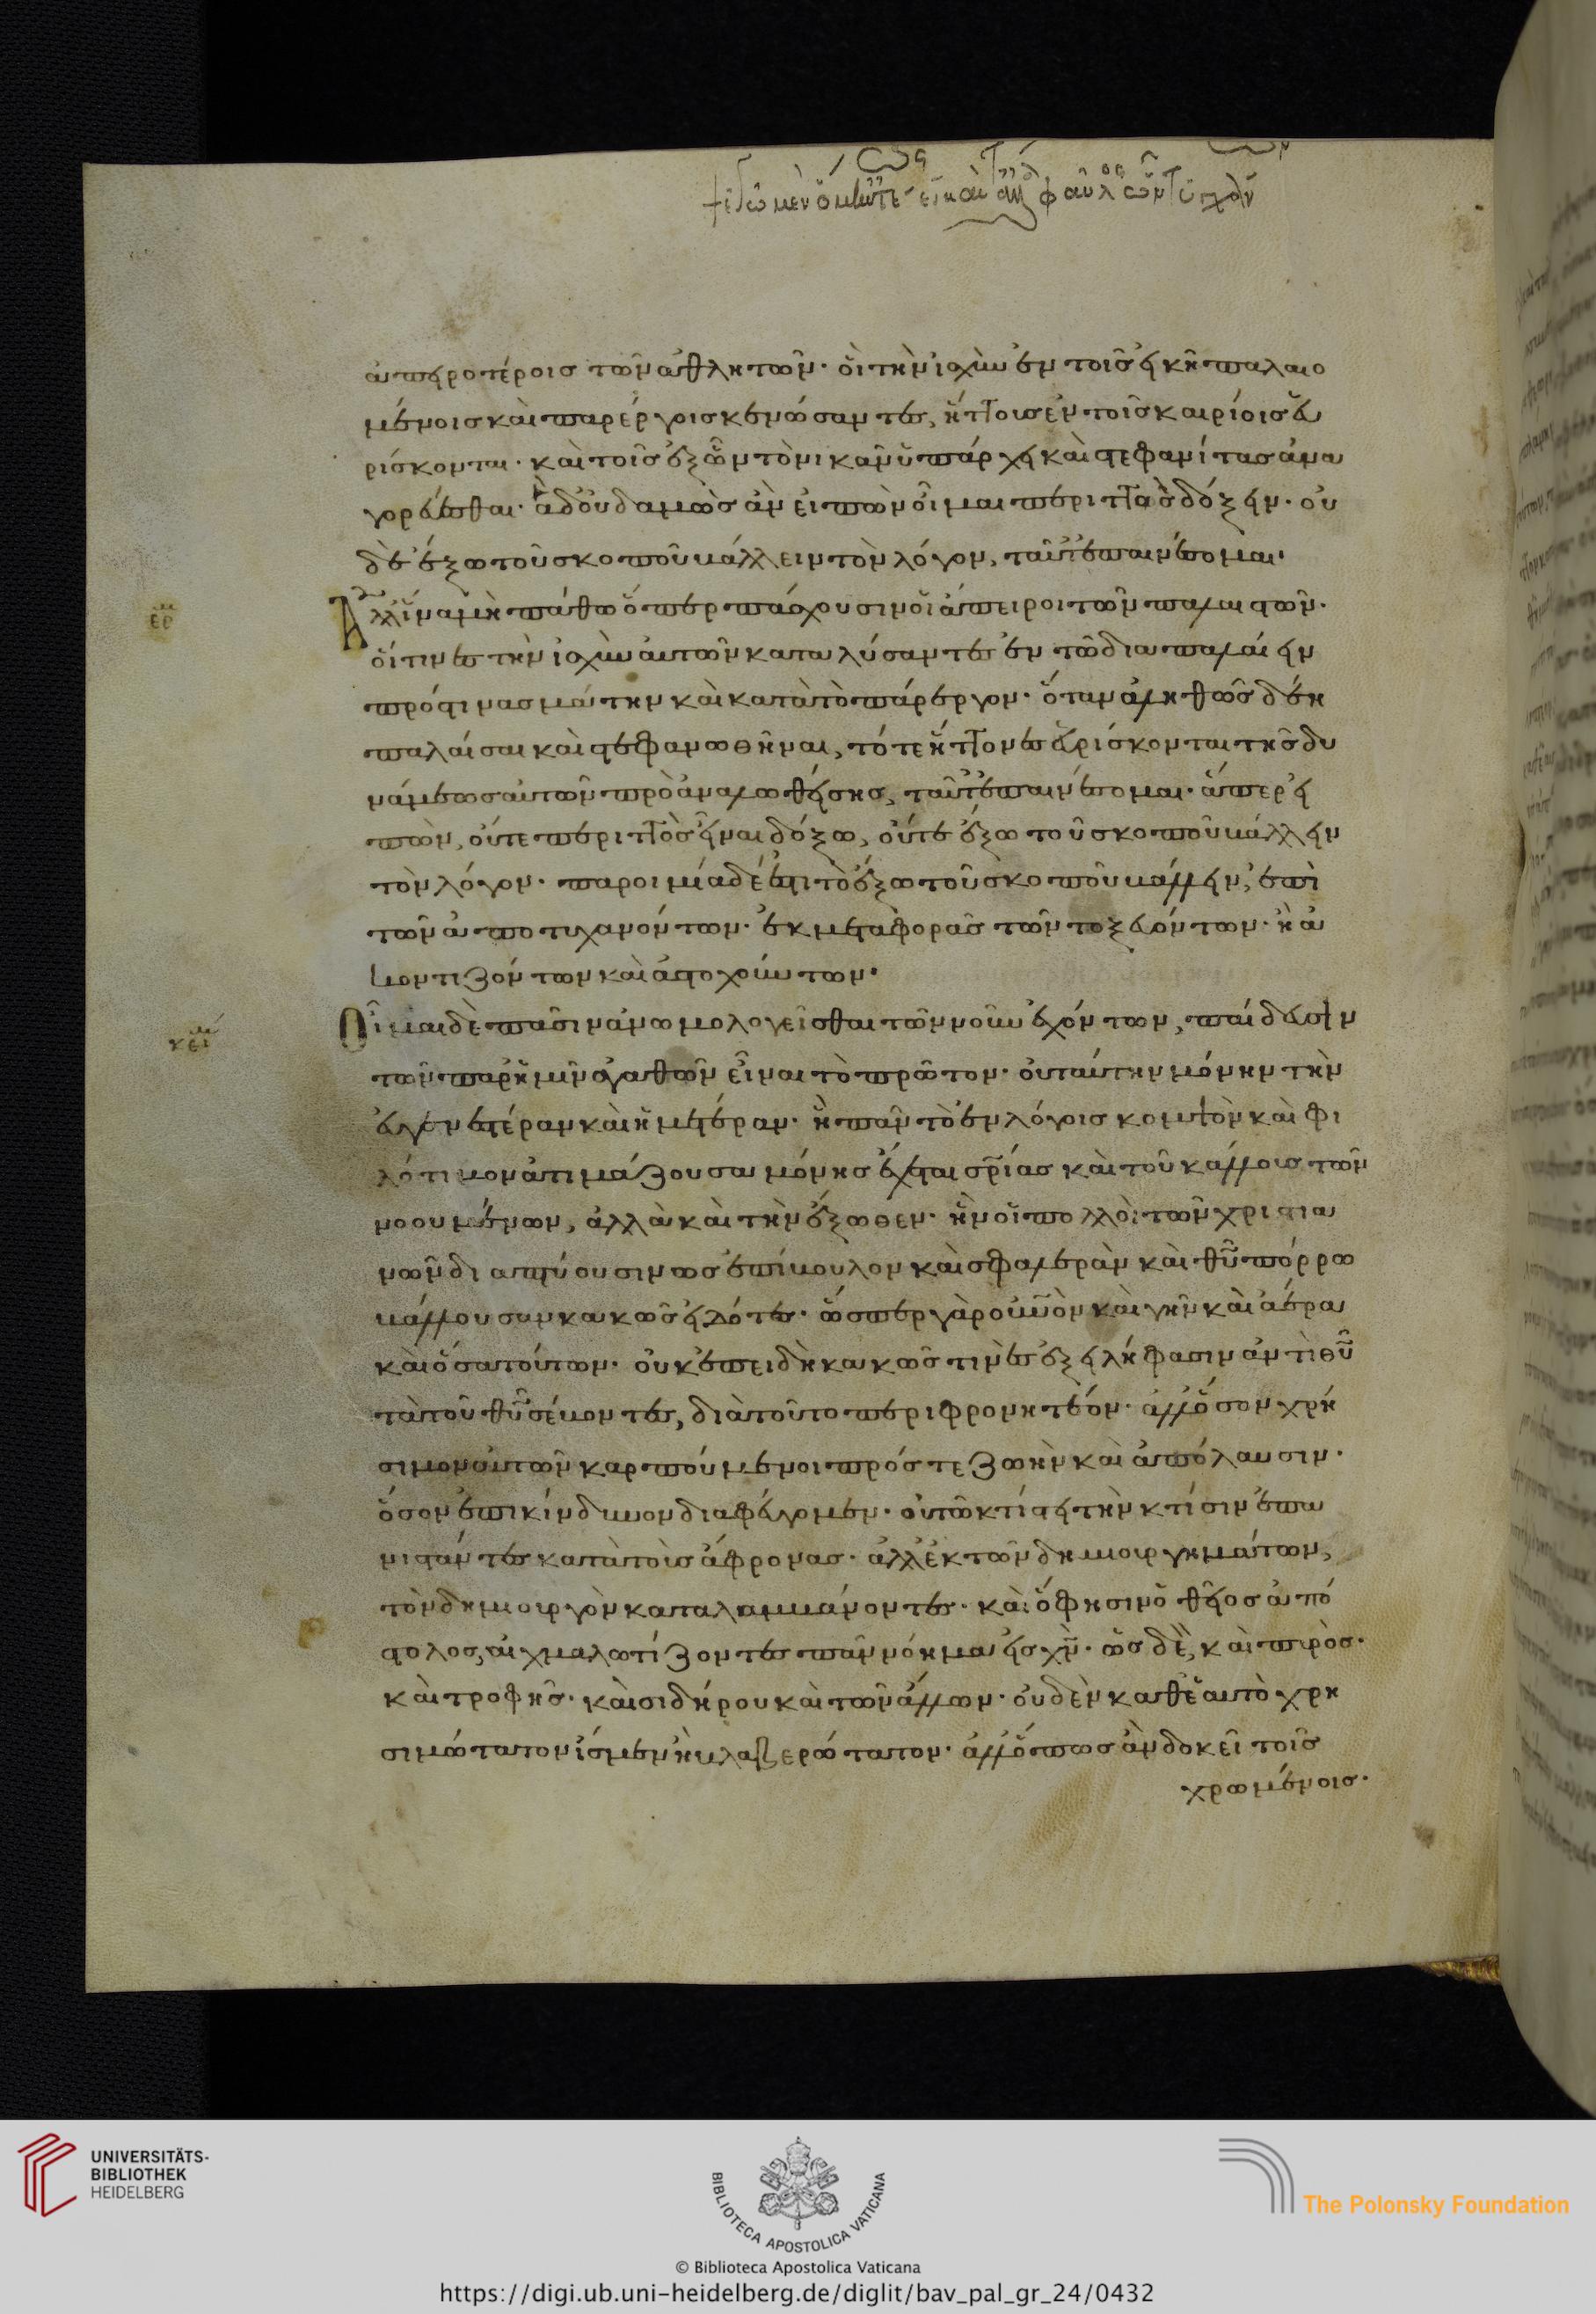 ἀπειροτέροις τῶν ἀθλητῶν· οἳ τὴν ἰσχὺν ἐν τοῖς εἰκῆ παλαιο
μένοις καὶ παρέργοις κενώσαντες, ἥττους ἐν τοῖς καιρίοις εὑ
ρίσκονται· καὶ τοῖς ἐξ ὧν τὸ νικᾶν ὑπάρχει καὶ στεφανίτας ἀνα
γορεύεσθαι· ἃ δ' οὐδαμῶς ἂν εἰπὼν οἶμαι περιττὸς δόξειν· οὐ
δὲ ἔξω τοῦ σκοποῦ βάλλειν τὸν λόγον, ταῦτ' ἐπαινέσομαι·
Ἀλλ' ἵνα μὴ πάθω ὅπερ πάσχουσιν οἱ ἄπειροι τῶν παλαιστῶν·
οἵτινες τὴν ἰσχὺν αὐτῶν καταλύσαντες ἐν τῶ διαπαλαίειν
πρός τινας μάτην καὶ κατὰ τὸ πάρεργον· ὅταν ἀληθῶς δέη
παλαῖσαι καὶ στεφανωθῆναι, τότε ἥττονες εὑρίσκονται τῆς δυ
νάμεως αὐτῶν προαναλωθείσης, ταῦτ' ἐπαινέσομαι· ἅπερ εἰ
πὼν, οὔτε περιττὸς εἶναι δόξω, οὔτε ἔξω τοῦ σκοποῦ βάλλειν
τὸν λόγον· παροιμία δέ ἐστι τὸ ἔξω τοῦ σκοποῦ βάλλειν, ἐπὶ
τῶν ἀποτυχανόντων· ἐκ μεταφορᾶς τῶν τοξευόντων· ἢ ἀ
κοντιζόντων καὶ ἀστοχούντων·
Οἶμαι δὲ πᾶσιν ἀνωμολογεῖσθαι τῶν νοῦν ἐχόντων, παίδευσιν
τῶν παρ' ἡμῖν ἀγαθῶν εἶναι τὸ πρῶτον· οὐ ταύτην μόνην τὴν
εὐγενεστέραν καὶ ἡμετέραν· ἣ πᾶν τὸ ἐν λόγοις κομψὸν καὶ φι
λότιμον ἀτιμάζουσα μόνης ἔχεται σρίας καὶ τοῦ κάλλους τῶν
νοουμένων, ἀλλὰ καὶ τὴν ἔξωθεν· ἣν οἱ πολλοὶ τῶν χριστια
νῶν διαπτύουσιν ὡς ἐπίβουλον καὶ σφαλερὰν καὶ θῦ πόρρω
βάλλουσαν κακῶς εἰδότες· ὥσπερ γὰρ οὐνὸν καὶ γῆν καὶ ἀέρα
καὶ ὅσα τούτων· οὐκ ἐπειδὴ κακῶς τινὲς ἐξειλήφασιν ἀντὶ θῦ
τὰ τοῦ θῦ σέβοντες, διὰ τοῦτο περιφρονητέον· ἀλλ' ὅσον χρή
σιμον αὐτῶν καρπούμενοι πρός τε ζωὴν καὶ ἀπόλαυσιν·
ὅσον ἐπικίνδυνον διαφεύγομεν· οὐ τῶ κτίστη τὴν κτίσιν ἐπα
νιστάντες κατὰ τοὺς ἄφρονας· ἀλλ' ἐκ τῶν δημιουργημάτων,
τὸν δημιουργὸν καταλαμβάνοντες· καὶ ὅ φησιν ὁ θεῖος ἀπό
στολος, αἰχμαλωτίζοντες πᾶν νόημα εἰς χν· ὡς δὲ, καὶ πυρὸς·
καὶ τροφῆς· καὶ σιδήρου καὶ τῶν ἄλλων· οὐδὲν καθ' ἑαυτὸ χρη
σιμώτατον ἴσμεν ἢ βλαβερώτατον· ἀλλ' ὅπως ἂν δοκεῖ τοῖς
χρωμένοις·
UNIVERSITÄTS-
BIBLIOTHEK
HEIDELBERG
BIBLIOTECA APOSTOLICA VATICANA
The Polonsky Foundation
© Biblioteca Apostolica Vaticana
https://digi.ub.uni-heidelberg.de/diglit/bav_pal_gr_24/0432